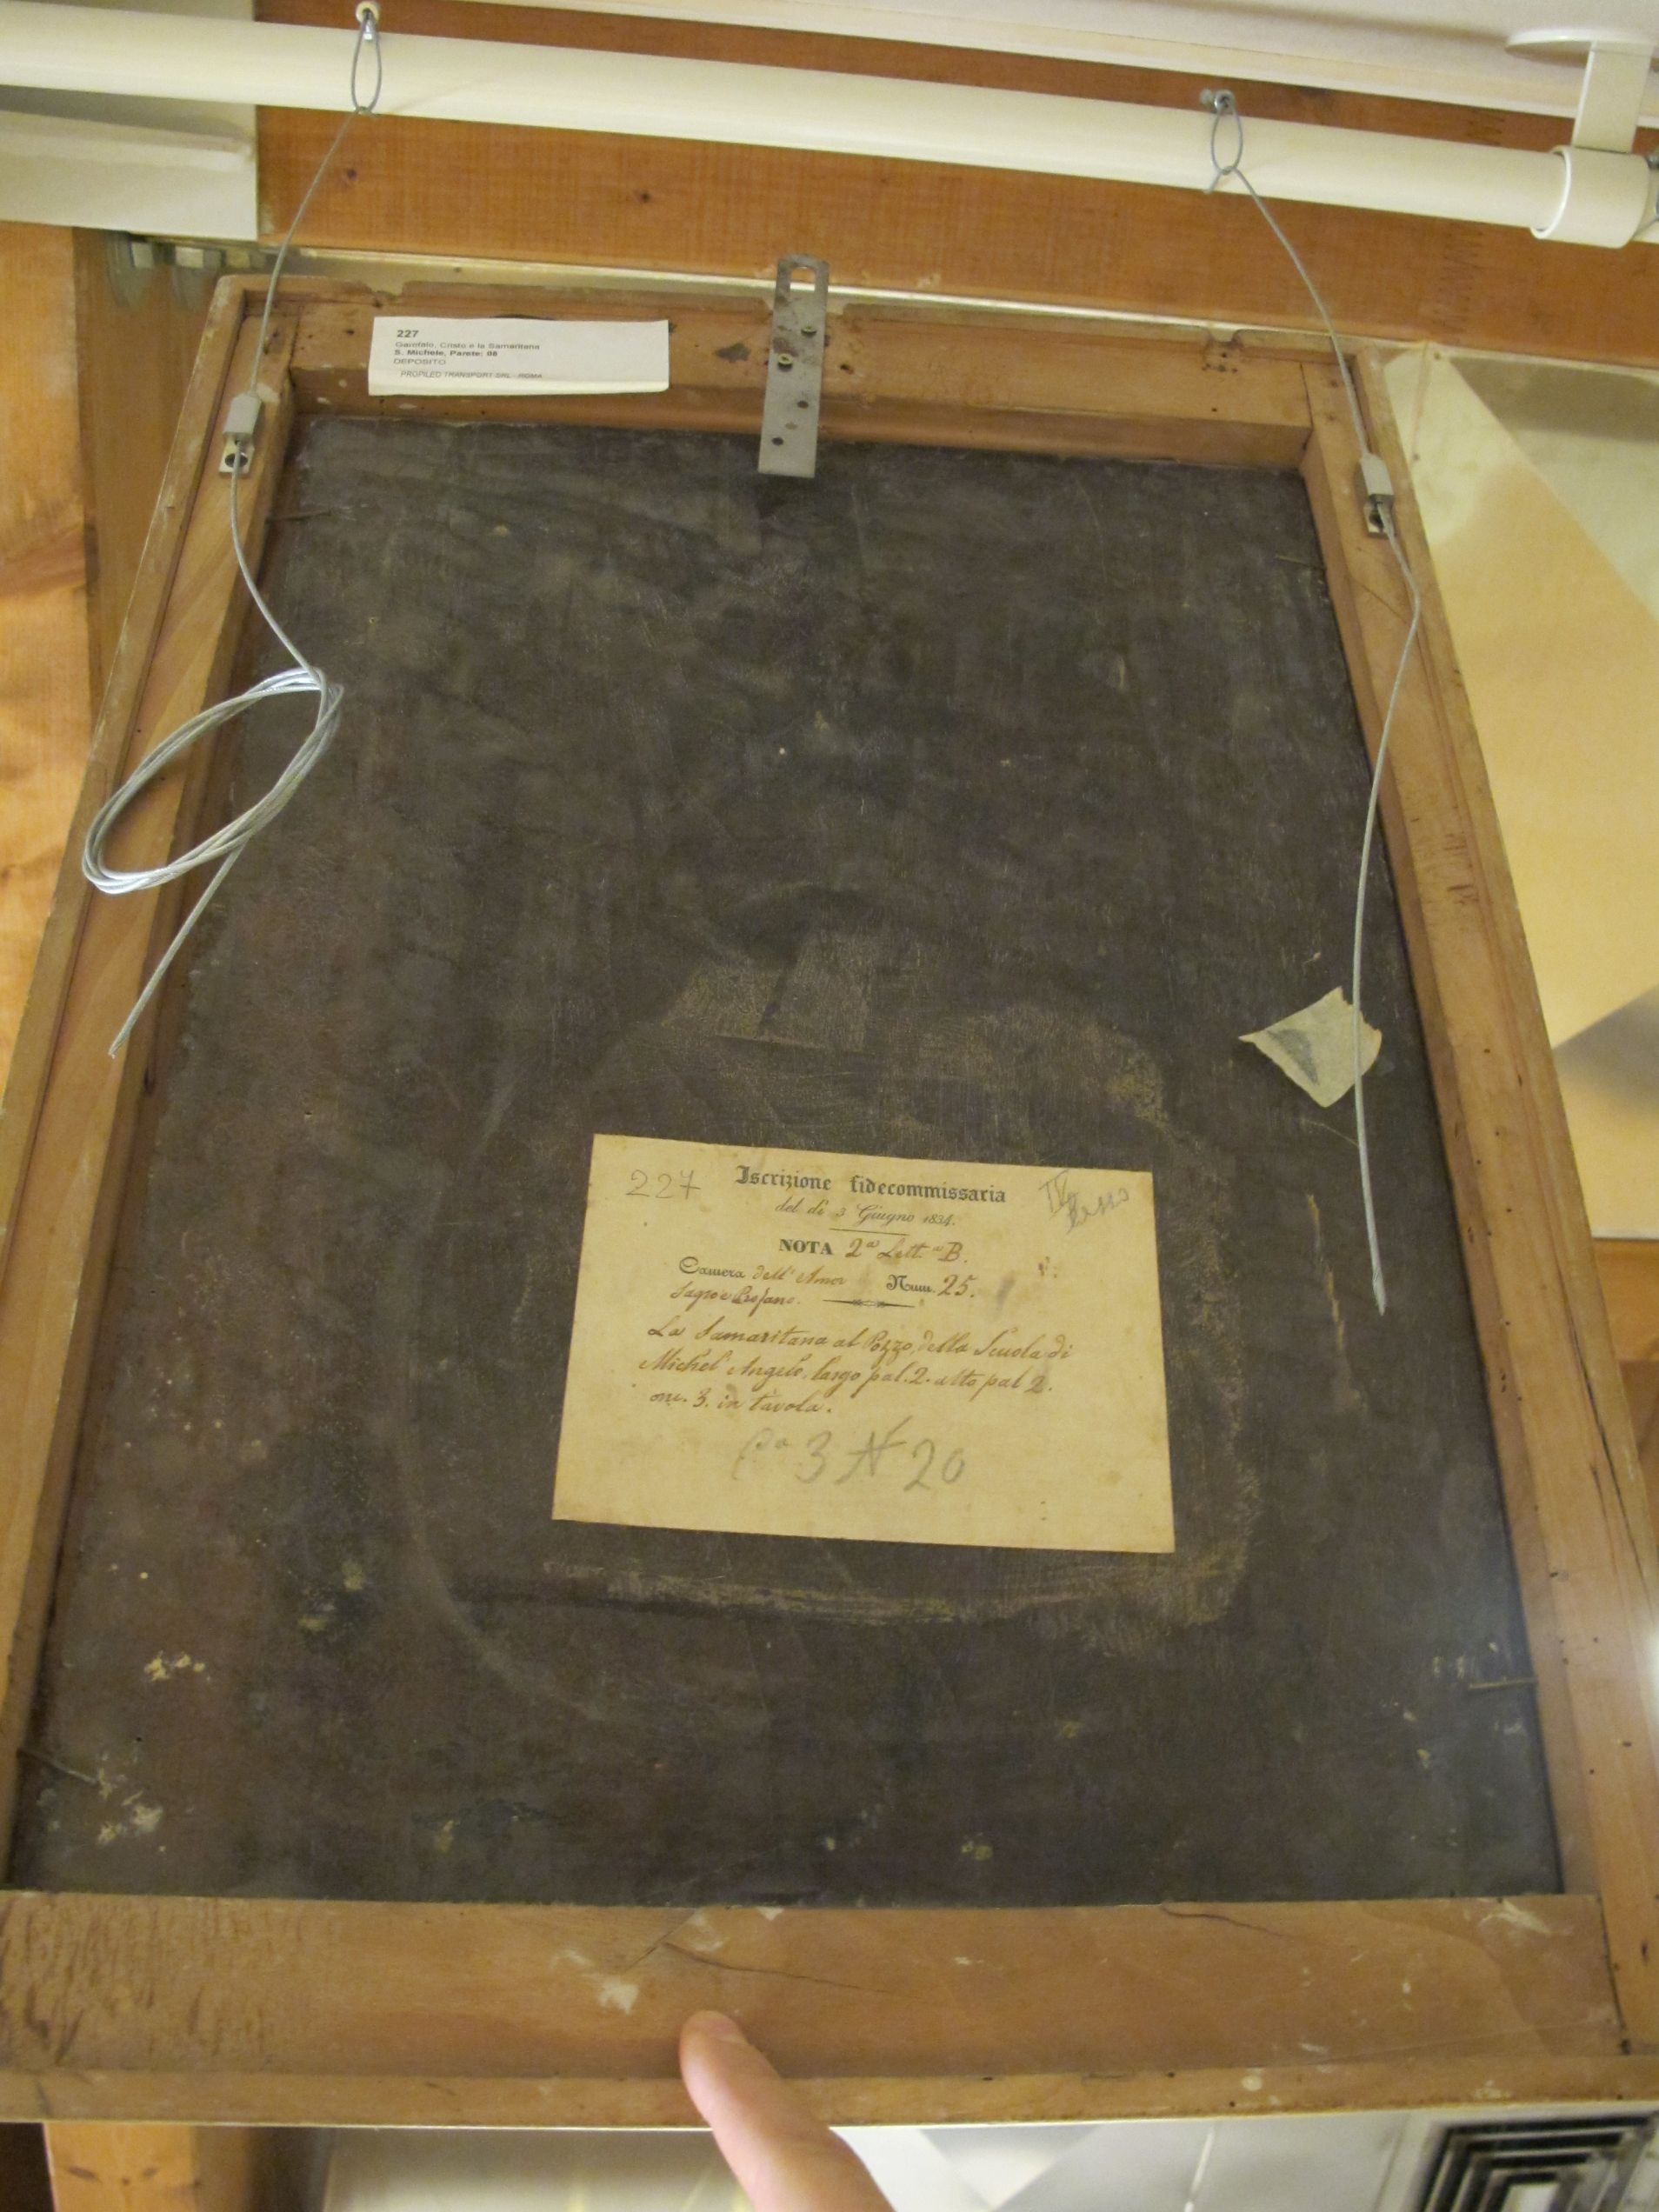 227
Garofalo, Cristo e la Samaritana
S. Michele, Parete: 08
DEPOSITO
PROPILEO TRANSPORT SRL - ROMA
227 Iscrizione fidecommissaria IV
del dì 3 Giugno 1834.
NOTA 2ª Lett.ª B.
Camera dell'Amor Num. 25.
Sagro e Profano.
La Samaritana al Pozzo, della Scuola di
Michel Angelo, largo pal. 2. alto pal 2.
onc. 3. in tavola.
3 N 20